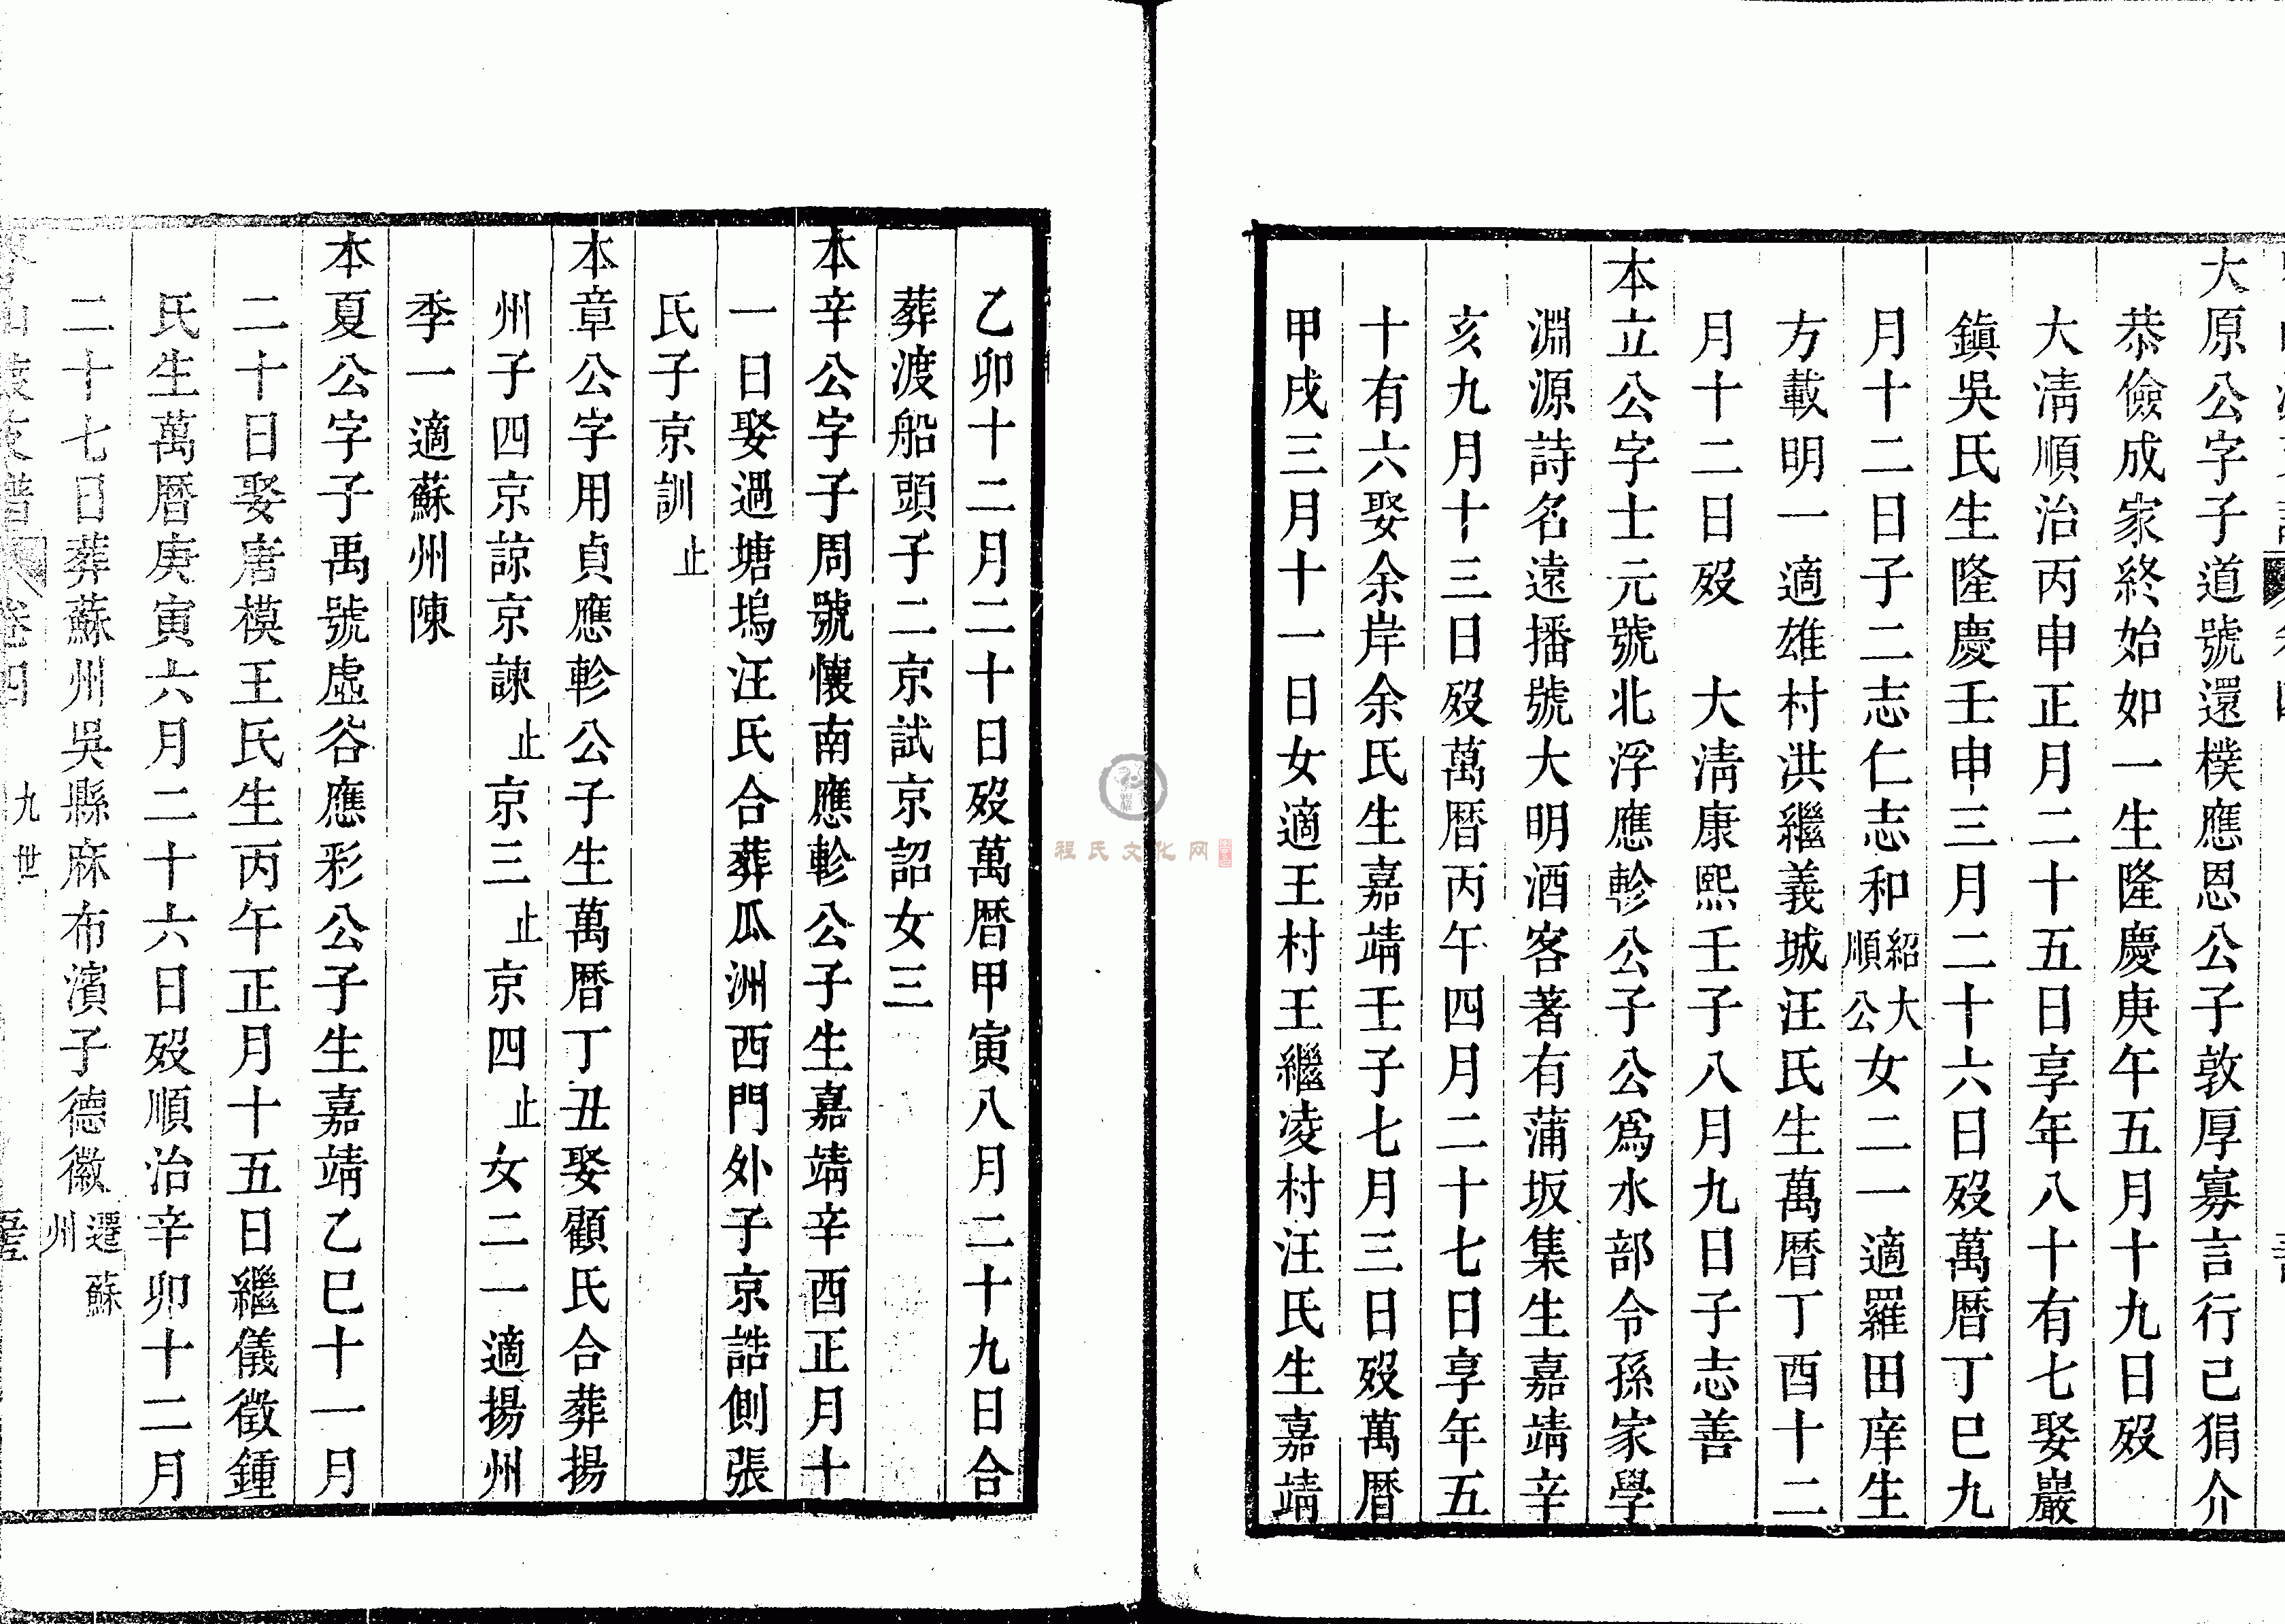 大原公字子道號還樸應恩公子敦厚寡言行己狷介
恭儉成家終始如一生隆慶庚午五月十九日歿
大淸順治丙申正月二十五日享年八十有七娶巖
鎭吳氏生隆慶壬申三月二十六日歿萬曆丁巳九
月十二日子二志仁志和紹大順公女二一適羅田庠生
方載明一適雄村洪繼義城汪氏生萬曆丁酉十二
月十二日歿 大淸康熙壬子八月九日子志善
本立公字士元號北浮應軫公子公爲水部令孫家學
淵源詩名遠播號大明酒客著有蒲坂集生嘉靖辛
亥九月十三日歿萬曆丙午四月二十七日享年五
十有六娶余岸余氏生嘉靖壬子七月三日歿萬曆
甲戌三月十一日女適王村王繼凌村汪氏生嘉靖
乙卯十二月二十日歿萬曆甲寅八月二十九日合
葬渡船頭子二京試京詔女三
本辛公字子周號懷南應軫公子生嘉靖辛酉正月十
一日娶過塘塢汪氏合葬瓜洲西門外子京誥側張
氏子京訓止
本章公字用貞應軫公子生萬曆丁丑娶顧氏合葬揚
州子四京諒京諫止京三止京四止女二一適揚州
季一適蘇州陳
本夏公字子禹號虛谷應彩公子生嘉靖乙巳十一月
二十日娶唐模王氏生丙午正月十五日繼儀徵鍾
氏生萬曆庚寅六月二十六日歿順治辛卯十二月
二十七日葬蘇州吳縣麻布濱子德徽遷蘇州
卷四 九世
程氏文化网